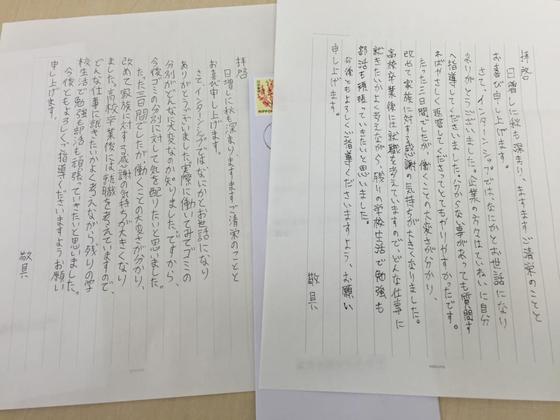 拝啓
日増しに秋も深まり、ますますご清栄のことと
お喜び申し上げます。
さて、インターンシップではなにかとお世話になり
ありがとうございました。企業の方々はていねいに自分
へ指導してくださいました。分からない事があっても質問す
ればやさしく返答してくださってとてもやりやすかったです。
たった三日間でしたが、働くことの大変さが分かり、
改めて家族に対する感謝の気持ちが大きくなりました。
高校卒業後には就職を考えていますので、どんな仕事に
就きたいかよく考えながら、残りの学校生活で勉強も
部活も頑張っていきたいと思いました。
今後ともよろしくご指導くださいますよう、お願い
申し上げます。
敬具
拝啓
日増しに秋も深まりますますご清栄のことと
お喜び申し上げます。
さて、インターンシップではなにかとお世話になり
ありがとうございました。実際に働いてみてゴミの
分別がどんな大変なのか知りました。ですから、
今後ゴミの分別に対して気を配りたいと思いました。
たった三日間でしたが働くことの大変さが分かり、
改めて家族に対する感謝の気持ちが大きくなり
ました。高校卒業後には就職を考えていますので、
どんな仕事に就きたいかよく考えながら、残りの学
校生活で勉強も部活も頑張っていきたいと思いました。
今後ともよろしくご指導くださいますようお願い
申し上げます。
敬具
NIPPON